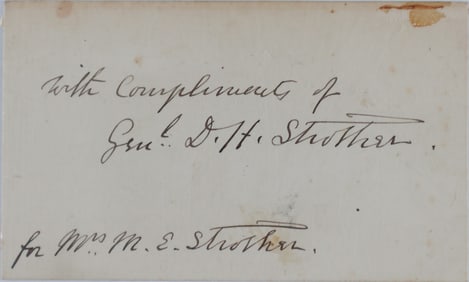 with Compliments of
Genl. D. H. Strother.
for Mrs. M. E. Strother.